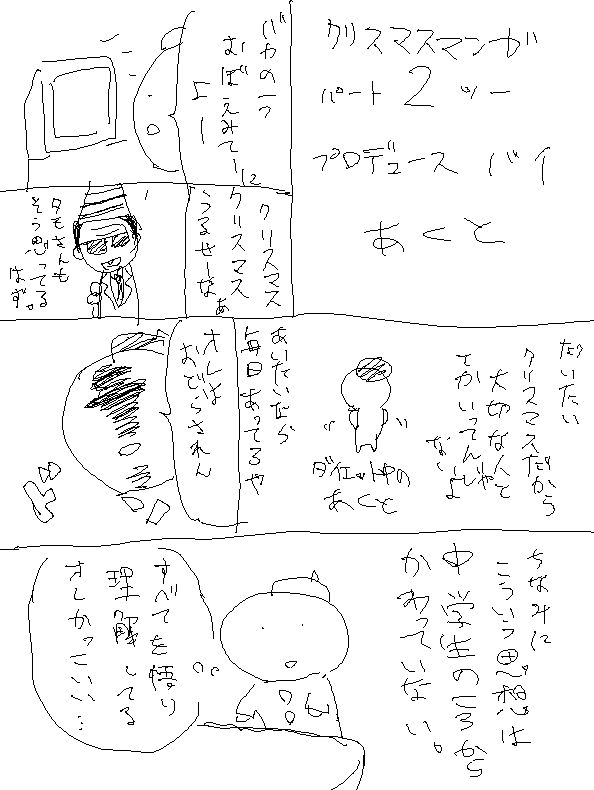 クリスマスマンガ
パート2ツー
プロデュース バイ
あくと
バカのつ
おぼえみてーに
よー
クリスマス
クリスマス
うるせーなぁ
タモさんも
そう思ってる
はず。
だいたい
クリスマスだから
大切な人と
とかいってんじゃ
ないよ
ダイエット中の
あくと
あいたいなら
毎日あってろや
オレは
おどらされん
ちなみに
こういう思想は
中学生のころから
かわっていない。
すべてを悟り
理解してる
オレかっこいい…